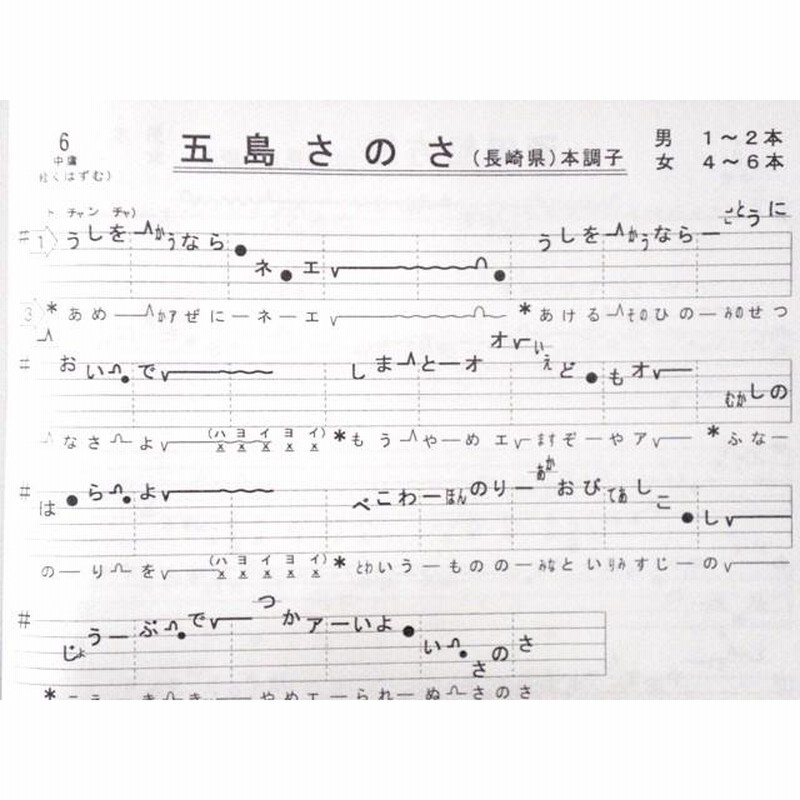 6
五島さのさ(長崎県)本調子
男 1~2本
女 4~6本
中庸
チャン チャ)
# 1 うしを かぅなら● ネ●エ ● うしを かぅなら ー ことうに
3 * あめ ー かァぜに ー ネ ー エ * あける ー そのひの ー みのせつ
# おい● で しまーとーオ オ いぇど●もオ むかしの
なさ よ (ハヨイヨイ) * もうーやーめェ ますぞーやア * ふなー
# は●ら●よ べこわーほんのりーあかおびてあしこ●し
のーりを (ハヨイヨイ) * とわいうーもののーみなといりみすじーの
# じょうーぶ●で つかァーいよ●い●さのさ